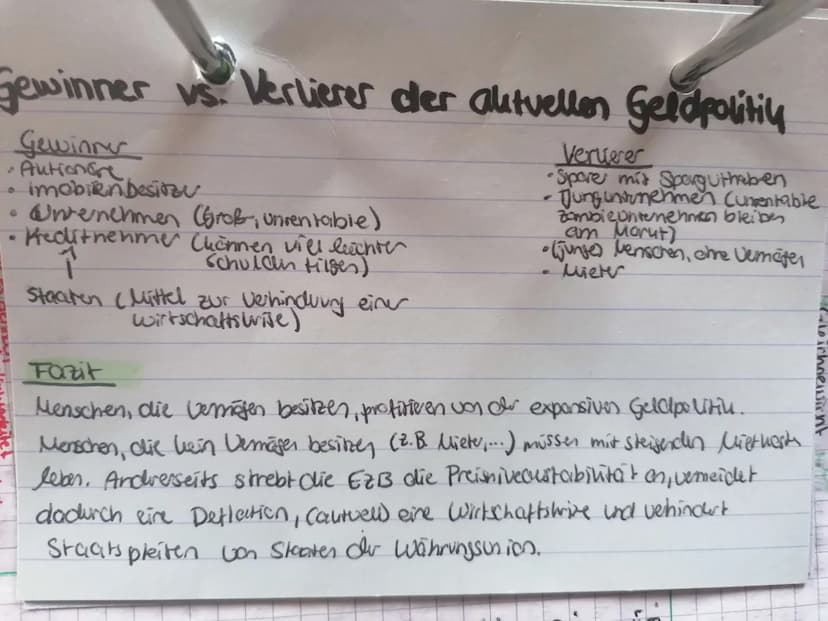 Gewinner vs. Verlierer der aktuellen Geldpolitik
Gewinner
• Aktionäre
• Imobilienbesitzer
• Unternehmen (Groß, unrentable)
• Kreditnehmer (können viel leichter
Schulden tilgen)
↑
Staaten (Mittel zur Verhindung einer
Wirtschaftskrise)
Verlierer
• Sparer mit Sparguthaben
• Jungunternehmen (unrentable
Zombieunternehmen bleiben
am Markt)
• (junge) Menschen, ohne Vermögen
• Mieter
Fazit
Menschen, die Vermögen besitzen, profitieren von der expansiven Geldpolitik.
Menschen, die kein Vermögen besitzen (z.B Mieter,...) müssen mit steigenden
leben. Andrerseits strebt die EZB die Preisniveaustabilität an, vermeidet
dadurch eine Deflation, (aktuell) eine Wirtschaftskrise und verhindert
Staatspleiten von Staaten der Währungsunion.